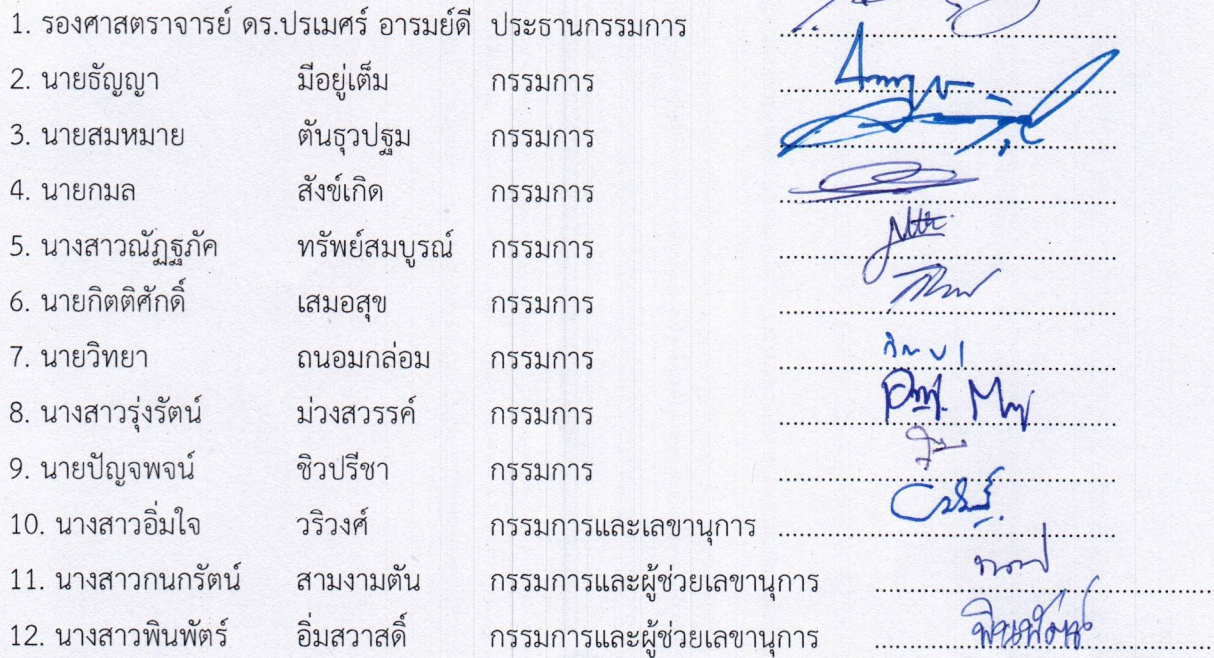 1. รองศาสตราจารย์ ดร.ปรเมศร์ อารมย์ดี ประธานกรรมการ
2. นายธัญญา มีอยู่เต็ม กรรมการ
3. นายสมหมาย ตันธุวปฐม กรรมการ
4. นายกมล สังข์เกิด กรรมการ
5. นางสาวณัฏฐภัค ทรัพย์สมบูรณ์ กรรมการ
6. นายกิตติศักดิ์ เสมอสุข กรรมการ
7. นายวิทยา ถนอมกล่อม กรรมการ
8. นางสาวรุ่งรัตน์ ม่วงสวรรค์ กรรมการ
9. นายปัญจพจน์ ชิวปรีชา กรรมการ
10. นางสาวอิ่มใจ วริวงศ์ กรรมการและเลขานุการ
11. นางสาวกนกรัตน์ สามงามตัน กรรมการและผู้ช่วยเลขานุการ
12. นางสาวพินพัตร์ อิ่มสวาสดิ์ กรรมการและผู้ช่วยเลขานุการ